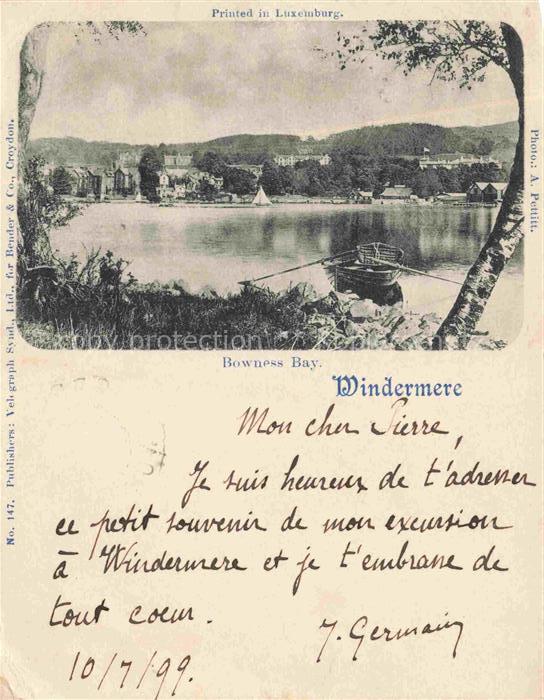 Printed in Luxemburg.
No. 147. Publishers: Velograph Synd., Ltd., for Bender & Co., Croydon.
Photo: A. Pettitt.
copy protection
Bowness Bay.
Windermere
Mon cher Pierre,
Je suis heureux de t'adresser
ce petit souvenir de mon excursion
à Windermere et je t'embrasse de
tout coeur.
J. Germain
10/7/99.